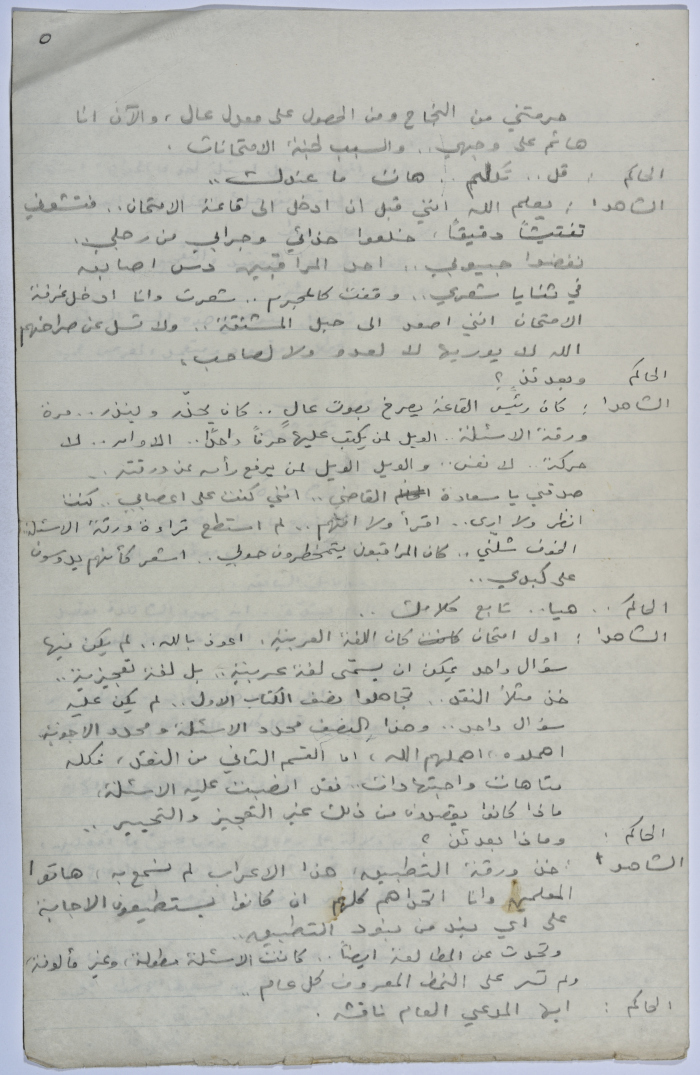 ٥
حرمتني من النجاح ومن الحصول على معدل عال، والآن انا
هائم على وجهي.. والسبب لجنة الامتحانات.
الحاكم : قل.. تكلم.. هات ما عندك..
الشاهد ١ : يعلم الله انني قبل ان ادخل الى قاعة الامتحان.. فتشوني
تفتيشاً دقيقاً، خلعوا حذائي وجرابي من رجلي..
نفضوا جيوبي.. احد المراقبين دس اصابعه
في ثنايا شعري.. وقفت كالمجرم.. شعرت وانا ادخل غرفة
الامتحان انني اصعد الى حبل المشنقة.. ولا تسل عن صراخهم
الله لا يوريها لا لعدو ولا لصاحب.
الحاكم وبعدئذٍ؟
الشاهد ١ : كان رئيس القاعة يصرخ بصوت عالٍ.. كان يحذّر وينذر.. مرة
ورقة الاسئلة.. الويل لمن يكتب عليها حرفاً واحداً.. الاوامر.. لا
حركة. لا نفس.. والويل الويل لمن يرفع رأسه عن ورقته..
صدقني يا سعادة القاضي.. انني كنت على اعصابي.. كنت
انظر ولا ارى.. اقرأ ولا افهم.. لم استطع قراءة ورقة الاسئلة
الخوف شلّني.. كان المراقبون يتمخطرون حولي.. اشعر كأنهم يدوسون
على كبدي..
الحاكم .. هيا.. تابع كلامك..
الشاهد ١ : اول امتحان كانت كان اللغة العربية. اعوذ بالله.. لم يكن فيها
سؤال واحد يمكن ان يسمّى لغة عربية.. بل لغة تعجيزية..
خذ مثلاً النقد.. تجاهلوا نصف الكتاب الاول.. لم يكن عليه
سؤال واحد.. وهذا النصف محدد الاسئلة ومحدد الاجوبة
اهملوه، اهملهم الله، اما القسم الثاني من النقد، فكله
متاهات واجتهادات.. فقد انصبت عليه الاسئلة.
ماذا كانوا يقصدون من ذلك غير التعجيز والتحيير..
الحاكم . وماذا بعدئذ؟
الشاهد ١ : خذ ورقة التطبيق، هذا الاعراب لم نسمع به، هاتوا
المعلمين وانا اتحداهم كلهم ان كانوا يستطيعون الاجابة
على اي بند من بنود التطبيق..
وتحدث عن المطالعة ايضاً.. كانت الاسئلة مطولة، وغير مألوفة،
ولم تسر على النمط المعروف كل عام..
الحاكم : ايها المدعي العام ناقشه.